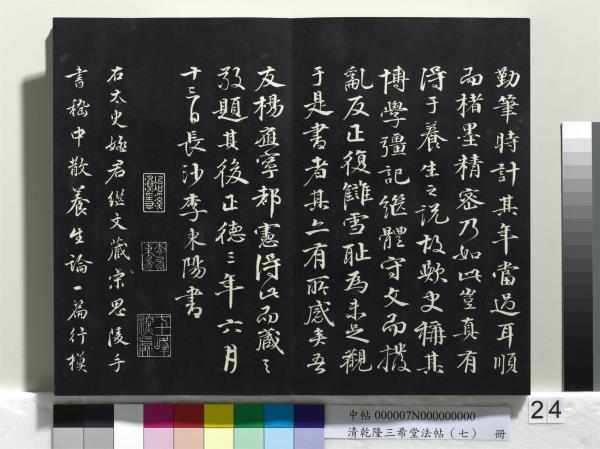 勤筆時計其年當過耳順
而楮墨精密乃如此豈真有
得于養生之説故歟史稱其
博學彊記繼體守文而撥
亂反正復讎雪恥為未足觀
于是書者其亦有所感矣吾
友楊應寧都憲得此而藏之
敬題其後正德三年六月
十三日長沙李東陽書
右太史姚君繼文藏宋思陵手
書嵇中散養生論一篇行模
24
中帖 000007N000000000
清乾隆三希堂法帖（七） 冊